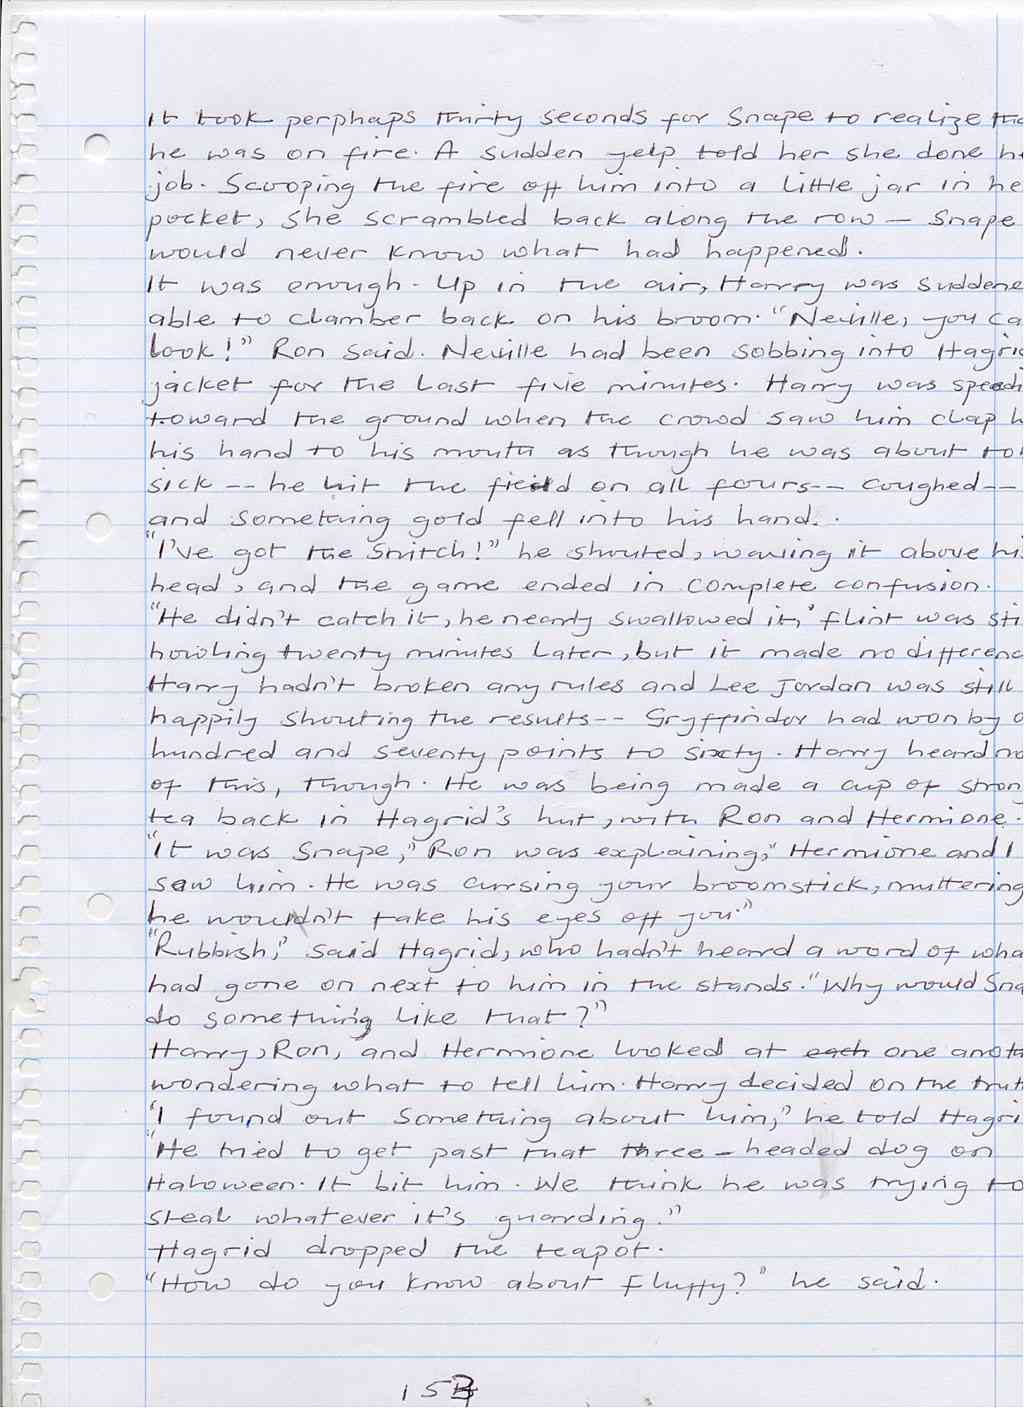 It took perphaps thirty seconds for Snape to realize tha
he was on fire. A sudden yelp told her she done he
job. Scooping the fire off him into a little jar in he
pocket, she scrambled back along the row — Snape
would never know what had happened.
It was enough. Up in the air, Harry was suddene
able to clamber back on his broom. "Neville, you ca
look!" Ron said. Neville had been sobbing into Hagri
jacket for the last five minutes. Harry was speedi
toward the ground when the crowd saw him clap h
his hand to his mouth as though he was about to
sick -- he hit the field on all fours -- coughed --
and something gold fell into his hand.
"I've got the Snitch!" he shouted, waving it above hi
head, and the game ended in complete confusion.
"He didn't catch it, he nearly swallowed it," flint was sti
howling twenty minutes later, but it made no differenc
Harry hadn't broken any rules and Lee Jordan was still
happily shouting the results -- Gryffindor had won by o
hundred and seventy points to sixty. Harry heard no
of this, though. He was being made a cup of stron
tea back in Hagrid's hut, with Ron and Hermione.
"It was Snape," Ron was explaining," Hermione and I
saw him. He was cursing your broomstick, muttering
he wouldn't take his eyes off you."
"Rubbish," said Hagrid, who hadn't heard a word of wha
had gone on next to him in the stands. "Why would Sna
do something like that?"
Harry, Ron, and Hermione looked at each one anoth
wondering what to tell him. Harry decided on the trut
"I found out something about him," he told Hagri
"He tried to get past that three-headed dog on
Haloween. It bit him. We think he was trying to
steal whatever it's guarding."
Hagrid dropped the teapot.
"How do you know about Fluffy?" he said.